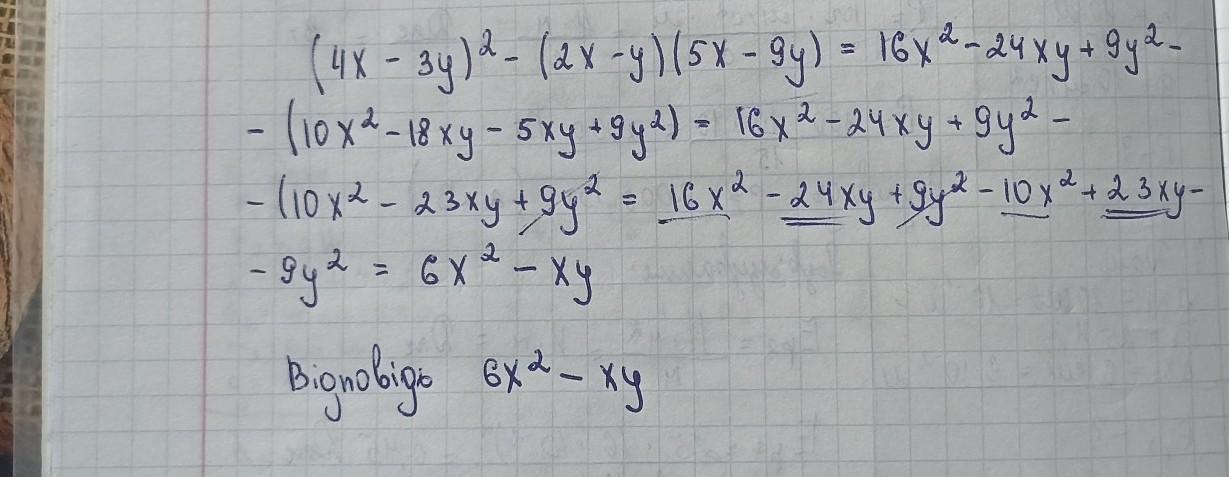 (4x - 3y)² - (2x - y)(5x - 9y) = 16x² - 24xy + 9y² -
- (10x² - 18xy - 5xy + 9y²) = 16x² - 24xy + 9y² -
- (10x² - 23xy + 9y² = 16x² - 24xy + 9y² - 10x² + 23xy -
- 9y² = 6x² - xy
Відповідь 6x² - xy